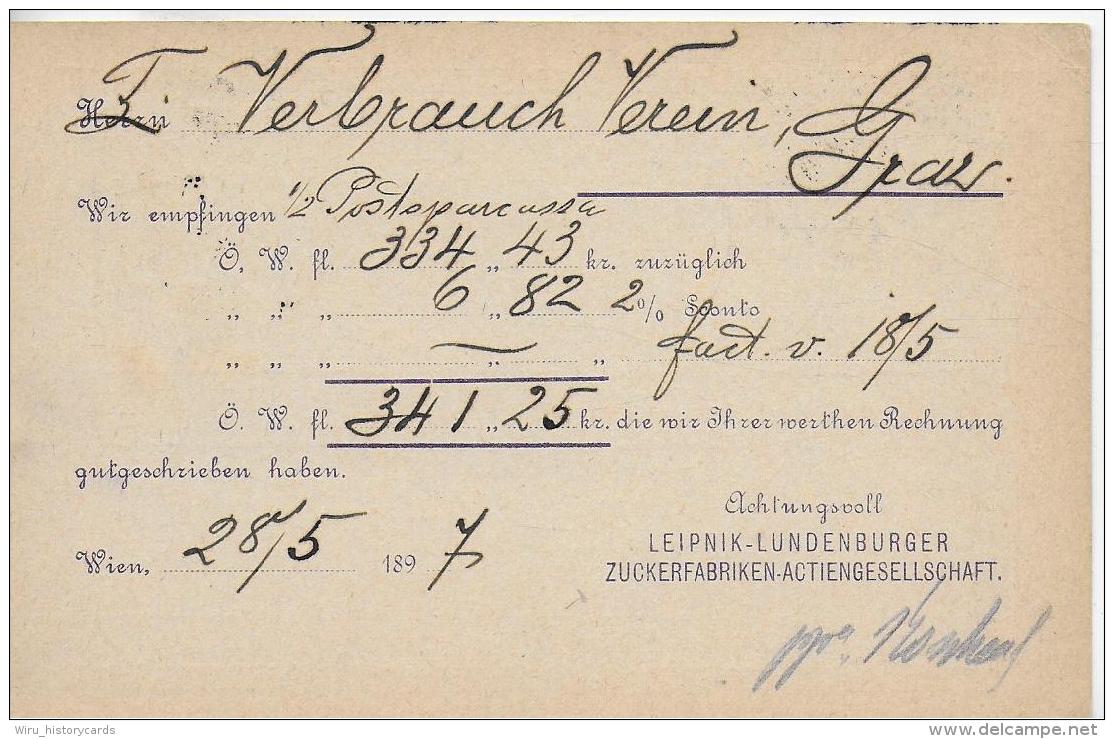 Herrn Verbrauch Verein,
Graz.
Wir empfingen 1/2 Postsparcassa
Ö. W. fl. 334 „ 43 kr. zuzüglich
„ „ „ 6 „ 82 2% Sconto
„ „ „ — „ „ fact. v. 18/5
Ö. W. fl. 341 „ 25 kr. die wir Ihrer werthen Rechnung
gutgeschrieben haben.
Wien, 28/5 1897
Achtungsvoll
LEIPNIK-LUNDENBURGER
ZUCKERFABRIKEN-ACTIENGESELLSCHAFT.
ppa.
Wiru_historycards
delcampe.net